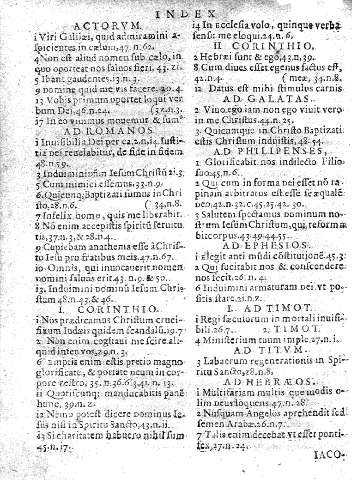 INDEX
ACTORVM.
1 Viri Galilæi, quid admiramini a-
spicientes in cælum, 47. n. 62.
4 Non est aliud nomen sub cælo, in
quo oporteat nos salvos fieri. 43. 21.
5 Ibant gaudentes. 13. n. 3.
9 Domine quid me vis facere. 49. 4.
13 Vobis primum oportet loqui ver
bum Dei. 48. n. 24.
17 In eo vivimus movemur & sum9
AD ROMANOS.
1 Invisibilia Dei per ea. 2. n. 14. Iusti-
tia Dei revelabitur, de fide in fidem
48. n. 59.
3 Induimini Iesum Christū 21. 3.
5 Cum inimici essemus. 33. n. 9.
6 Quicunq, Baptizati sumus in Chri
sto, 28. n. 6. ( 34. n. 8.
7 Infelix homo, quis me liberabit.
8 Nō enim accepistis spiritū servitu
tis, 37. n. 3, & 28. n. 4.
9 Cupiebam anathema esse à Christ
o Iesu pro fratribus meis. 47. n. 67.
10 Omnis, qui invocaverit nomen
Domini salvus erit 43. n. 6. & 50.
13. Induimini Dominū Iesum Chri
stum 48. n. 43, & 46.
I. CORINTHIO.
1 Nos prædicamus Christum cruci-
fixum Iudæis quidem scandalū. 19. 7
2 Non enim cogitavi me scire ali-
quid inter vos, 29. n. 3.
6 Empti enim estis pretio magno
glorificate, & portate Deum in cor-
pore vestro, 35. n. 36. 6. 41. n. 13.
11 Quotiscunq; manducabitis pané
hunc, 39. n. 2.
12 Nemo potest dicere Dominus Ie-
sus nisi in Spiritu Sancto, 43. n. 11.
13 Si charitatem habuero nihil sum
45. n. 17.
14 In ecclesia volo, quinque verba
sensu meo eloqui. 24. n. 6.
II CORINTHIO.
2 Hebræi sunt & ego, 43. n. 39.
8 Cum dives esset egenus factus est,
42. n. 4. (meæ, 34. n. 8.
12 Datus est mihi stimulus carnis
AD GALATAS.
2 Vivo ego iam non ego vivit vero
in me Christus, 44. n. 25.
3. Quicunque in Christo Baptizati
estis Christum induistis, 48. 54.
AD PHILIPENSES.
1 Glorificabit nos in dilecto Filio
suo, 45. n. 6.
2 Qui cum in forma Dei esset nō ra-
pinam arbitratus est esse se æqualē
Deo. 42. n. 32. c. 45. 25. 42. 30.
3 Salutem spectamus Dominum no-
strum Iesum Christum, qui, reform
AD EPHESIOS.
1 Elegit anti mūdi cōstitutionē. 45. 3.
2 Qui secitabit nos & conscendere
nos fecit. 26. n. 4.
6 Induimini armaturam Dei vt po-
sitis stare, 21. n. 2.
I. AD TIMOT.
1 Regi sæculorum in mortali invisi-
bili. 26. 7. 2. TIMOT.
4 Ministerium tuum imple, 27. n. 1.
AD TITVM.
3 Labacrum regenerationis in Spiri-
tu Sancto, 28. n. 8.
AD HEBRÆOS.
1 Multifariam multis que modis o-
lim Deus loquens. 47. n. 28.
2 Nusquam Angelos aprehendit sed
semen Arabæ. 26. n. 7.
7 Talis enim decebat vt esset ponti-
fex, 27. n. 24.
IACO-